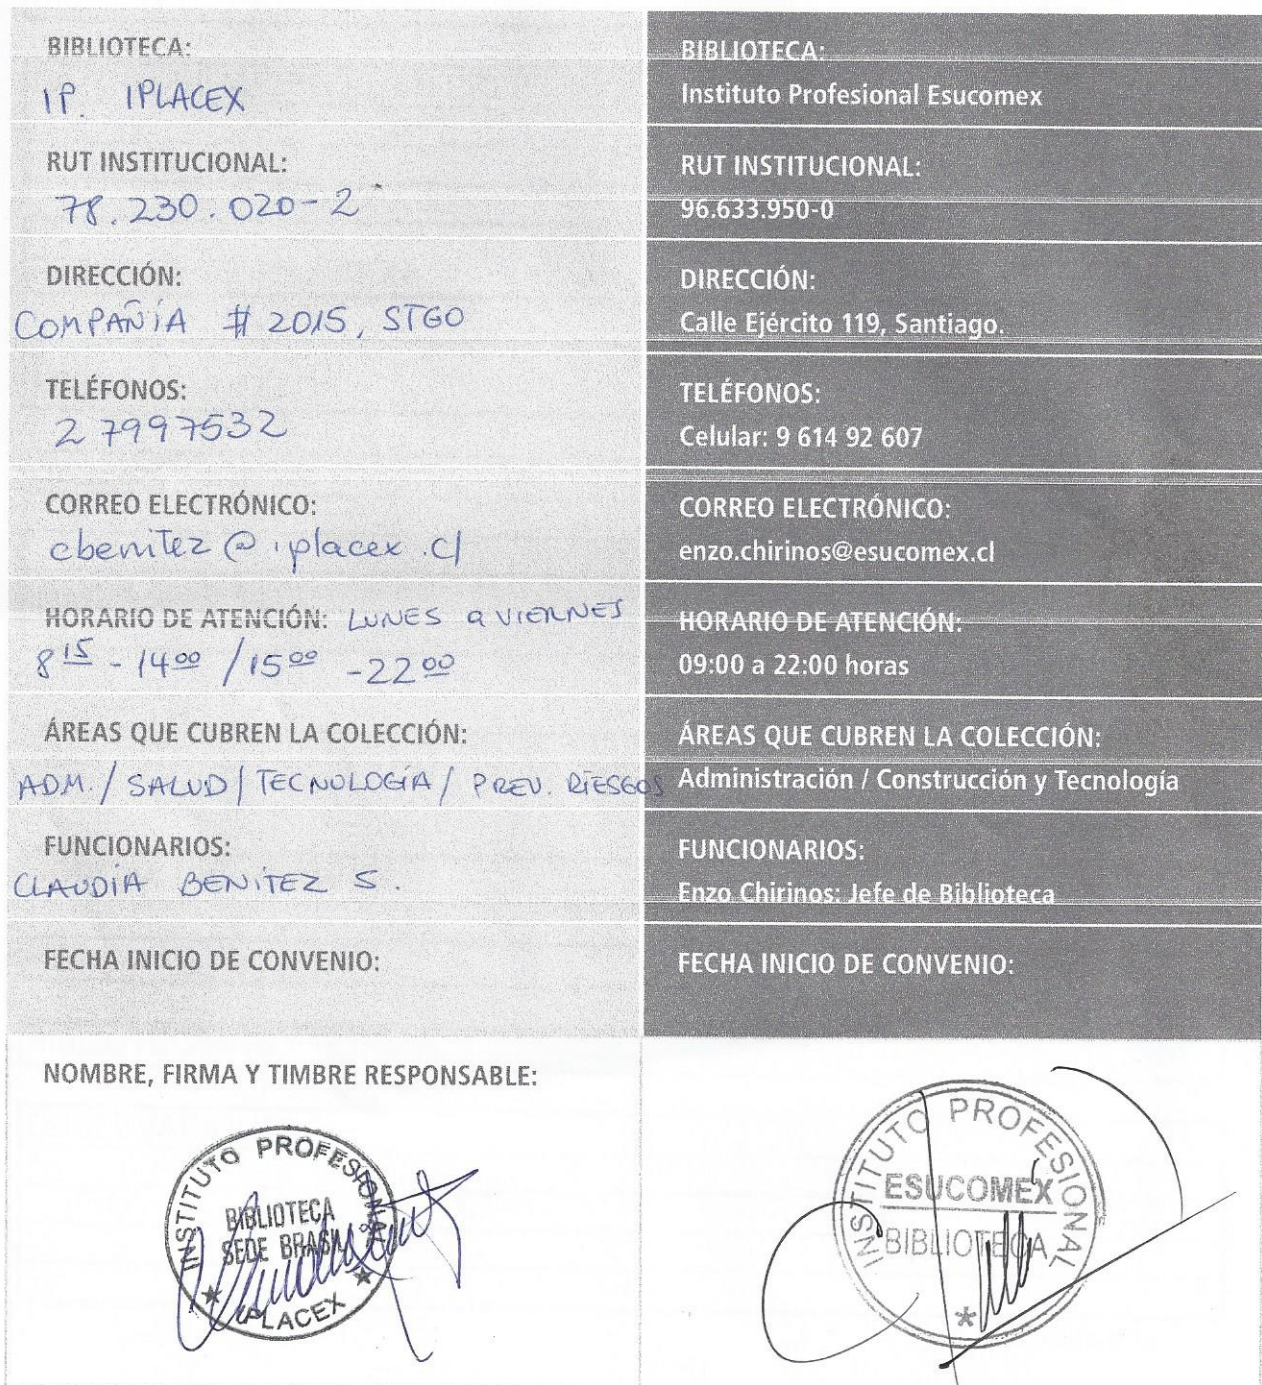 BIBLIOTECA:
IP. IPLACEX
RUT INSTITUCIONAL:
78.230.020-2
DIRECCIÓN:
COMPAÑIA # 2015, STGO
TELÉFONOS:
2 7997532
CORREO ELECTRÓNICO:
cbenitez@iplacex.cl
HORARIO DE ATENCIÓN: LUNES a VIERNES
8 15 - 14 00 / 15 00 - 22 00
ÁREAS QUE CUBREN LA COLECCIÓN:
ADM. / SALUD / TECNOLOGÍA / PREV. RIESGOS
FUNCIONARIOS:
CLAUDIA BENITEZ S.
FECHA INICIO DE CONVENIO:
NOMBRE, FIRMA Y TIMBRE RESPONSABLE:
INSTITUTO PROFESIONAL
BIBLIOTECA
SEDE BRASIL
IPLACEX
BIBLIOTECA:
Instituto Profesional Esucomex
RUT INSTITUCIONAL:
96.633.950-0
DIRECCIÓN:
Calle Ejército 119, Santiago.
TELÉFONOS:
Celular: 9 614 92 607
CORREO ELECTRÓNICO:
enzo.chirinos@esucomex.cl
HORARIO DE ATENCIÓN:
09:00 a 22:00 horas
ÁREAS QUE CUBREN LA COLECCIÓN:
Administración / Construcción y Tecnología
FUNCIONARIOS:
Enzo Chirinos: Jefe de Biblioteca
FECHA INICIO DE CONVENIO:
INSTITUTO PROFESIONAL
ESUCOMEX
BIBLIOTECA